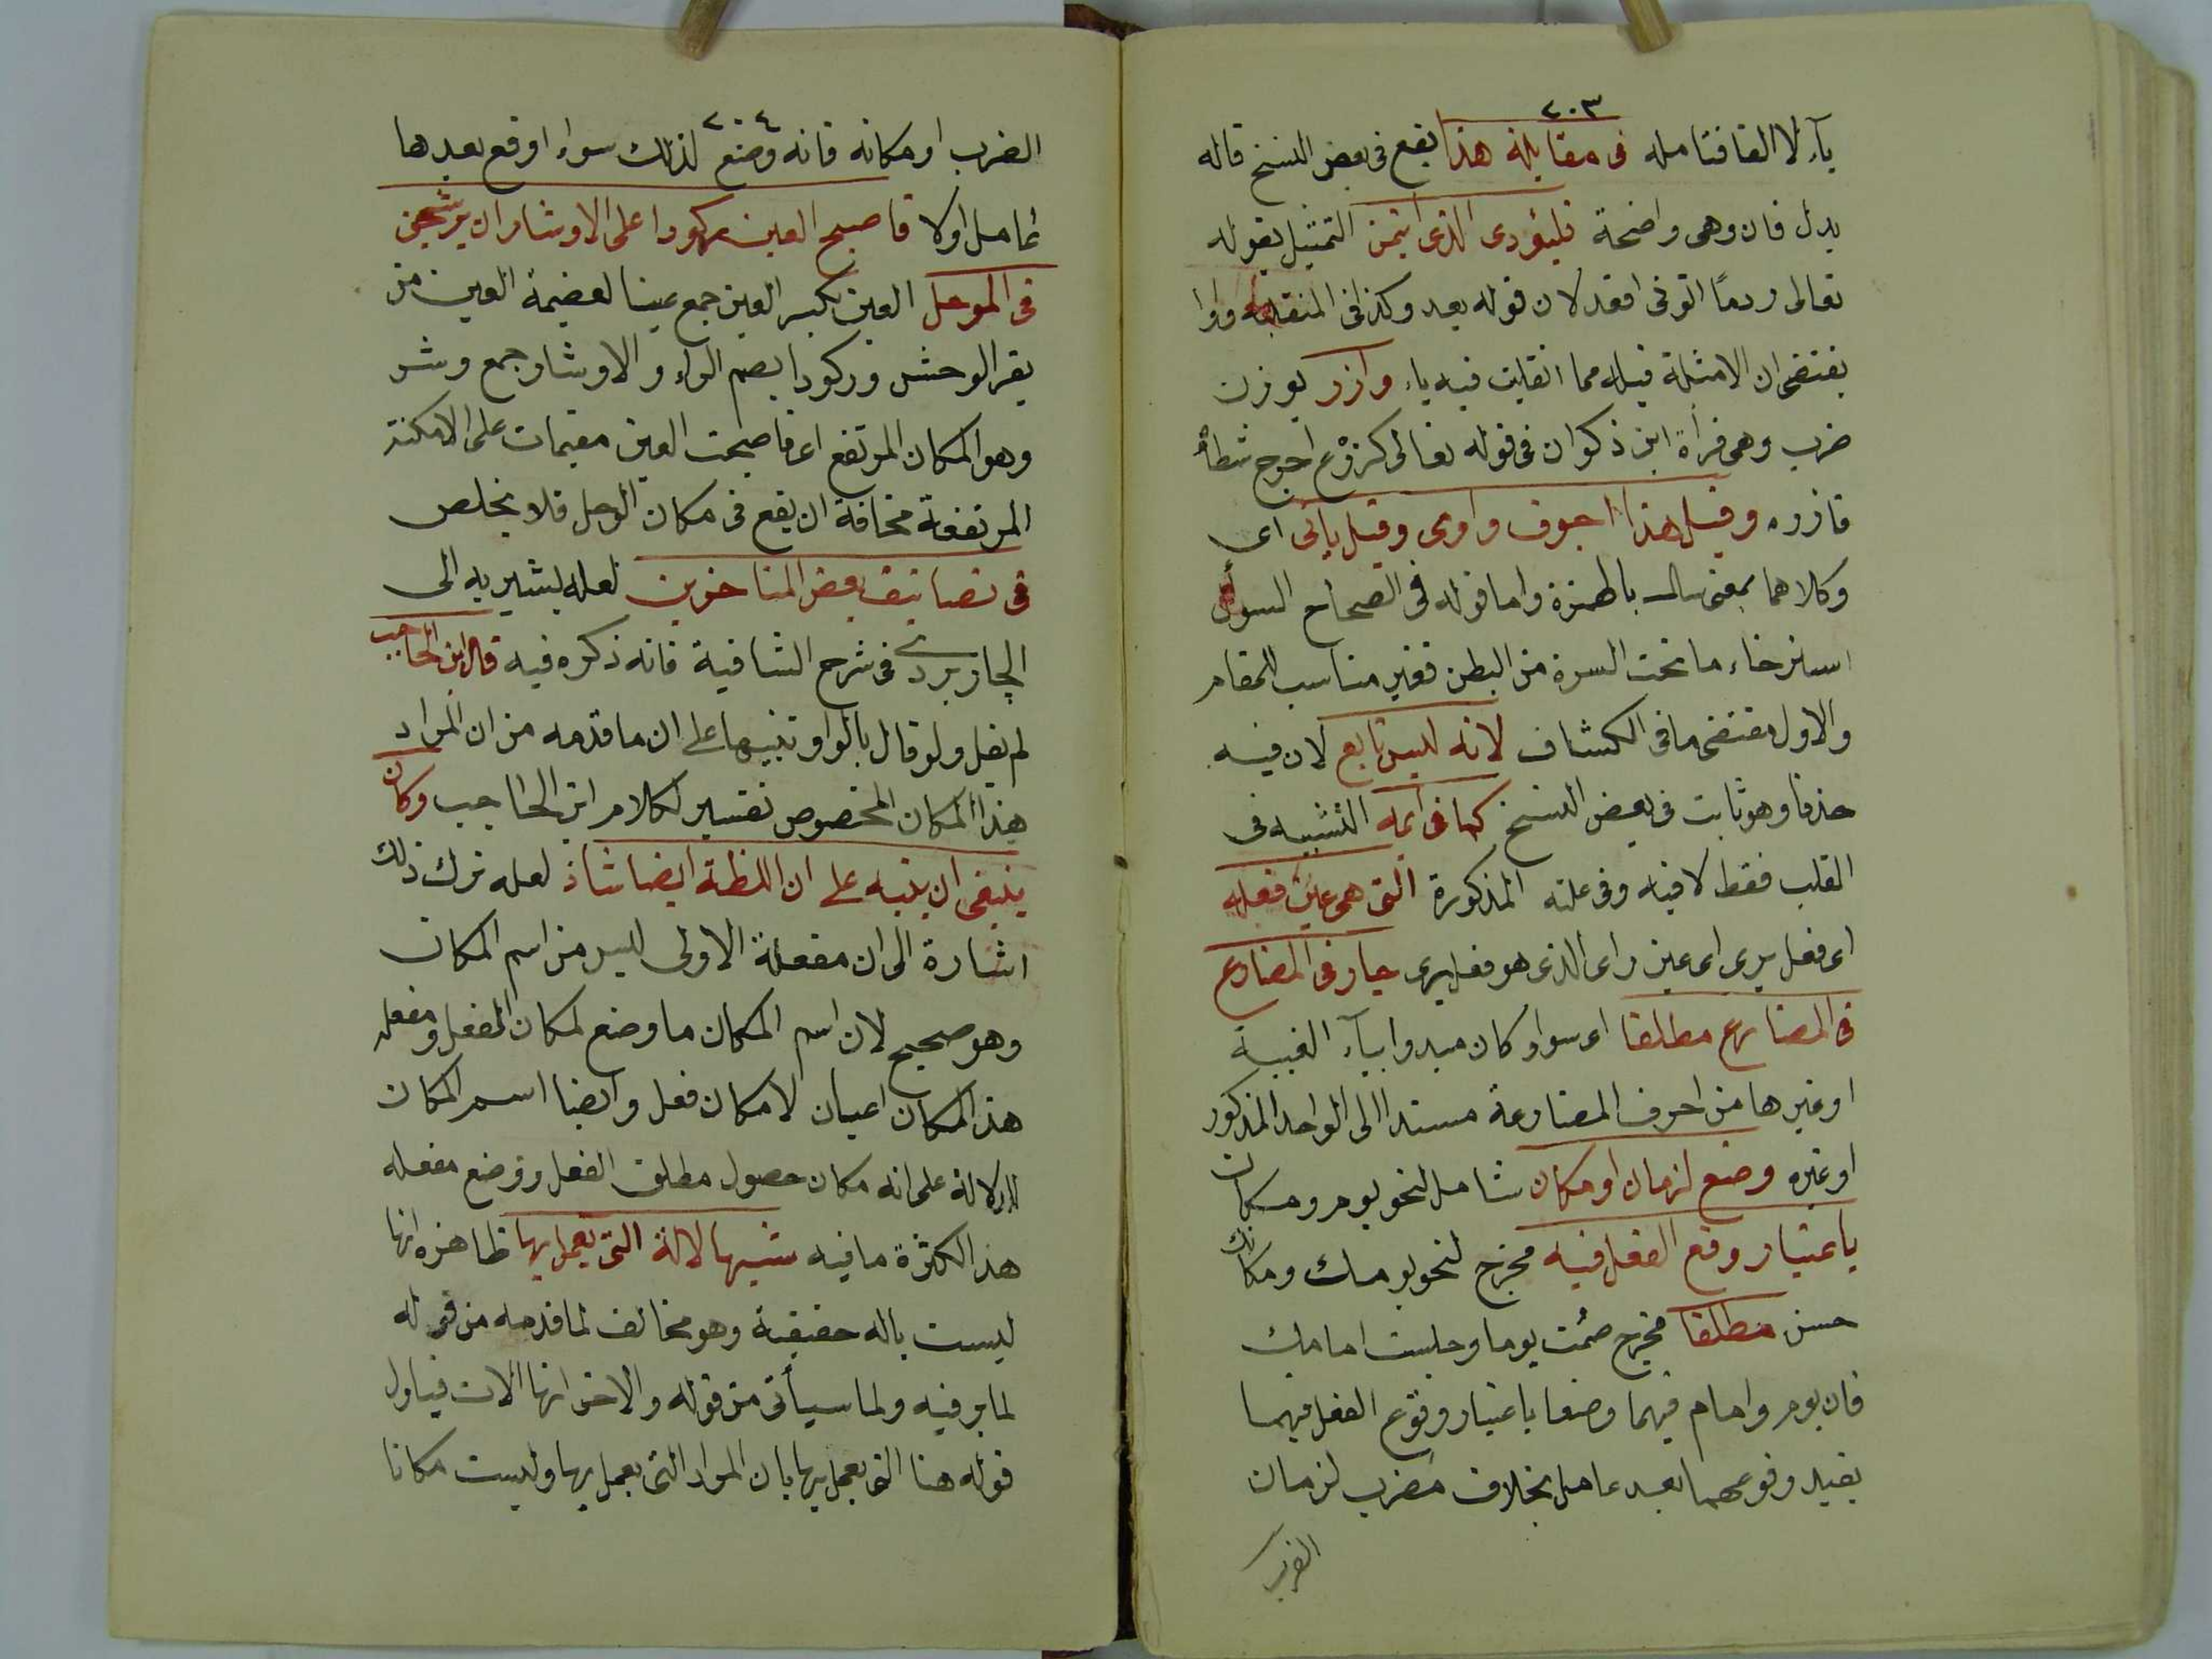 ٢٠٣
يآء لا الفا فتامله فى مقابلة هذا يقع فى بعض النسخ قاله
بدل فان وهى واضحة فليؤدى الذى ائتمن التمثيل بقوله
تعالى ردما اتونى اقعد لان قوله بعد وكذا فى المنقلبة واوا
يقتضى ان الامثلة قبله مما انقلبت فيه ياء وازر بوزن
ضرب وهى قرأة ابن ذكوان فى قوله تعالى كزرع اخرج شطأه
فازره وقيل هذا اجوف واوى وقيل يائى اى
وكلاهما بمعنى سال بالهمزة واما قوله فى الصحاح السول
استرخاء ما تحت السرة من البطن فغير مناسب للمقام
والاول مقتضى ما فى الكشاف لانه ليس تابع لان فيه
حذفا وهو ثابت فى بعض النسخ كما فى ايمة التشبيه فى
القلب فقط لا فيه وفى علته المذكورة التى هى عين فعله
اى فعل يرى اى عين راى الذى هو فعل يرى جار فى المضارع
فى المضارع مطلقا اى سواء كان مبدوا بيآء الغيبة
او غيرها من احرف المضارعة مسندا الى الواحد المذكور
او غيره وضع لزمان او مكان شامل لنحو يوم ومكان
باعتبار وقع الفعل فيه مخرج لنحو يومك ومكانك
حسن مطلقا مخرج صمت يوما وجلست امامك
فان يوم وامام فيهما وضعا باعتبار وقوع الفعل فيهما
بقيد وقوعهما بعد عامل بخلاف مضرب لزمان
الضرب
٢٠٤
الضرب او مكانه فانه وضع لذلك سواء اوقع بعدها
عامل اولا فاصبح العين ركودا على الاوشاز ان يرسخن
فى الموحل العين بكسر العين جمع عينا لعضيمة العين من
بقر الوحش وركودا بضم الراء والاوشاز جمع وشز
وهو المكان المرتفع اى فاصبحت العين مقيمات على الامكنة
المرتفعة مخافة ان يقع فى مكان الوحل فلا يخلص
فى تصانيف بعض المتاخرين لعله يشير به الى
الجاربردى فى شرح الشافية فانه ذكره فيه قال ابن الحاجب
لم يقل ولو قال بالواو تنبيها على ان ما قدمه من ان المراد
هذا المكان المخصوص تفسير لكلام ابن الحاجب وكان
ينبغى ان ينبه على ان اللظة ايضا شاذ لعله ترك ذلك
اشارة الى ان مفعلة الاولى ليس من اسم المكان
وهو صحيح لان اسم المكان ما وضع لمكان الفعل ومفعله
هذا المكان اعيان لا مكان فعل وايضا اسم المكان
للدلالة على انه مكان حصول مطلق الفعل ووضع مفعله
هذا لكثرة ما فيه شبيها لالة التى يعمل بها ظاهره انها
ليست باله حقيقية وهو مخالف لما قدمه من قوله
لما بر فيه ولما سيأتى من قوله والاخر انها الات فياول
قوله هنا التى يعمل بها بان المراد التى يعمل بها وليست مكانا